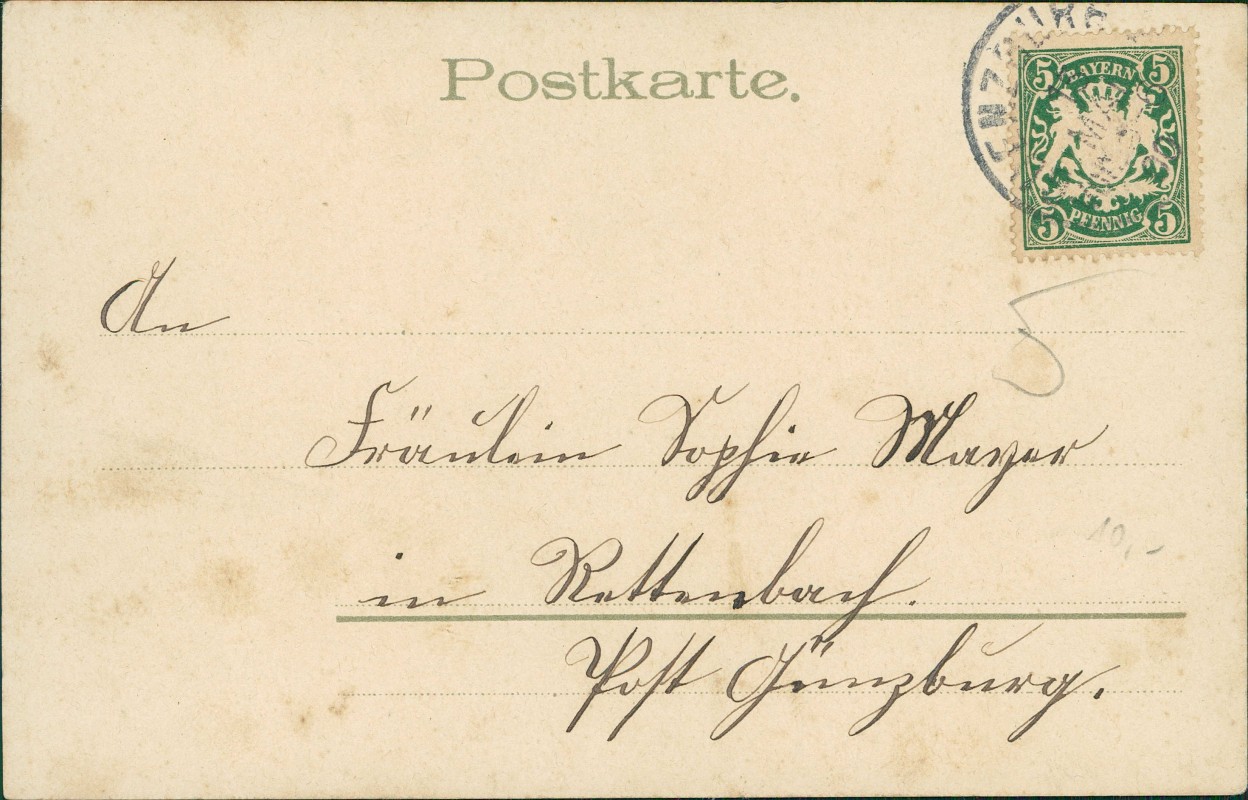 Postkarte.
5 BAYERN 5
5 PFENNIG 5
An
Fräulein Sophie Mayer
in Rettenbach.
Post Günzburg.
10,-